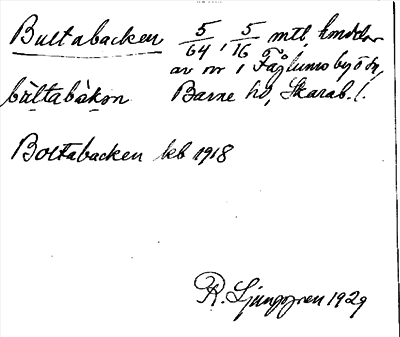 Bultabacken 5/64, 5/16 mtl, hmdelar
av nr 1 Fåglums by o sn,
bùltabàkən Barne hd, Skarab. l.
Boltabacken kb 1918
R. Ljunggren 1929